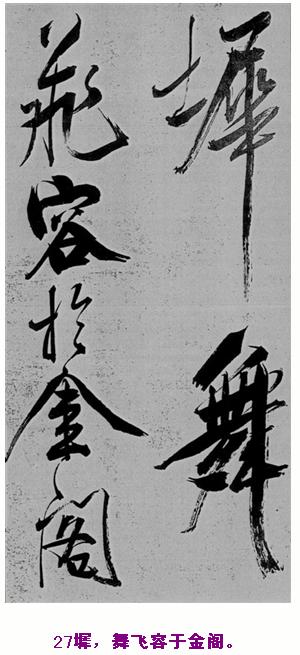 墀舞
飛容於金閣
27墀，舞飞容于金阁。